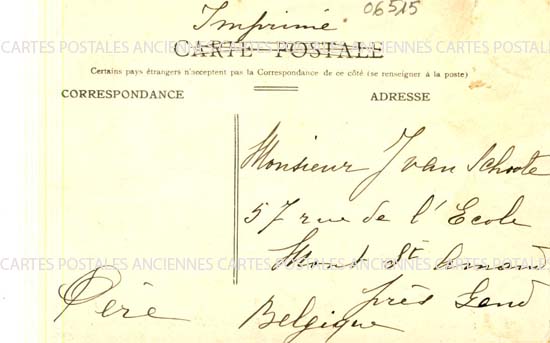 06515
Imprimé
CARTE POSTALE
Certains pays étrangers n'acceptent pas la Correspondance de ce côté (se renseigner à la poste)
CORRESPONDANCE
ADRESSE
Monsieur Yvan Schoote
57 rue de l'Ecole
Mont St Amand
près Gend
Belgique
Père
CARTES POSTALES ANCIENNES CARTES POSTALES ANCIENNES CARTES POSTALES ANCIENNES CARTES POSTALES
CARTES POSTALES ANCIENNES CARTES POSTALES ANCIENNES CARTES POSTALES ANCIENNES CARTES POSTALES